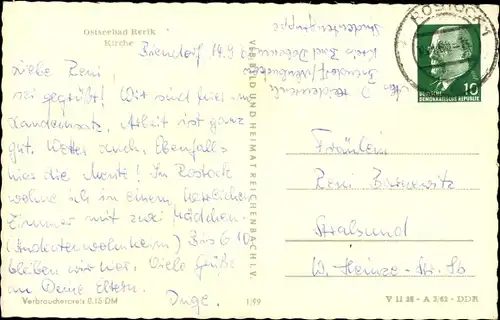 Ostseebad Rerik
Kirche
Biendorf 14.9.
Liebe Reni,
sei gegrüßt! Wir sind hier im
Landeinsatz, Arbeit ist ganz
gut. Wetter auch. Ebenfalls
hier die Leute! In Rostock
wohne ich in einem herrlichen
Zimmer mit zwei Mädchen.
(Studentenwohnheim) Bis 6.10.
bleiben wir hier. Viele Grüße
an Deine Eltern.
Inge.
Verbraucherpreis 0,15 DM
1/99
VEB BILD UND HEIMAT REICHENBACH I. V.
Biendorf
Kreis Bad Doberan
Studentengruppe
ROSTOCK 1
10
DEUTSCHE
DEMOKRATISCHE REPUBLIK
Fräulein
Reni
Stralsund
W.-Heinze-Str. 5b
V 11 28 - A 2/62 - DDR